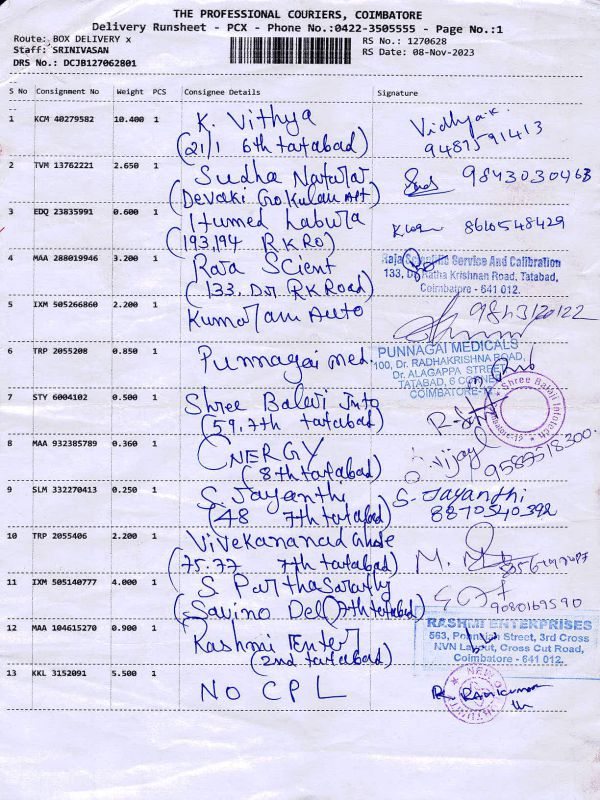 THE PROFESSIONAL COURIERS, COIMBATORE
Delivery Runsheet - PCX - Phone No.:0422-3505555 - Page No.:1
Route: BOX DELIVERY x
RS No.: 1270628
Staff: SRINIVASAN
RS Date: 08-Nov-2023
DRS No.: DCJB127062801
S No Consignment No Weight PCS Consignee Details Signature
1 KCM 40279582 10.400 1 K. Vithya Vidhya.K.
(21/1 6th tatabad) 9487591413
2 TVM 13762221 2.650 1 Sudha Natarar 9843030463
(Devaki Gokulam Apt)
3 EDQ 23835991 0.600 1 8610548429
(193,194 RKRO)
4 MAA 288019946 3.200 1 Raja Scient Raja Scientific Service And Calibration
(133, Dr RK Road) 133, Dr Ratha Krishnan Road, Tatabad,
Coimbatore - 641 012.
5 IXM 505266860 2.200 1 Kumaran Auto 9843120122
6 TRP 2055208 0.850 1 Punnagai med. PUNNAGAI MEDICALS
100, Dr. RADHAKRISHNA ROAD,
Dr. ALAGAPPA STREET
TATABAD, 6 CORNER
COIMBATORE-12
7 STY 6004102 0.500 1 Shree Balavi Info Shree Balaji Infotech
(59, 7th tatabad) Coimbatore-12
8 MAA 932385789 0.360 1 ENERGY Vijay
(8th tatabad) 9585518300.
9 SLM 332270413 0.250 1 S. Jayanthi S. Jayanthi
(48 7th tatabad) 8870540392
10 TRP 2055406 2.200 1 Vivekananad
(75.77 7th tatabad)
11 IXM 505140777 4.000 1 S. Parthasarathy
(Savino Del 7th tatabad) 9080169590
12 MAA 104615270 0.900 1 Rashmi Enter RASHMI ENTERPRISES
(2nd tatabad) 563, Street, 3rd Cross
NVN Layout, Cross Cut Road,
Coimbatore - 641 012.
13 KKL 3152091 5.500 1 NO CPL